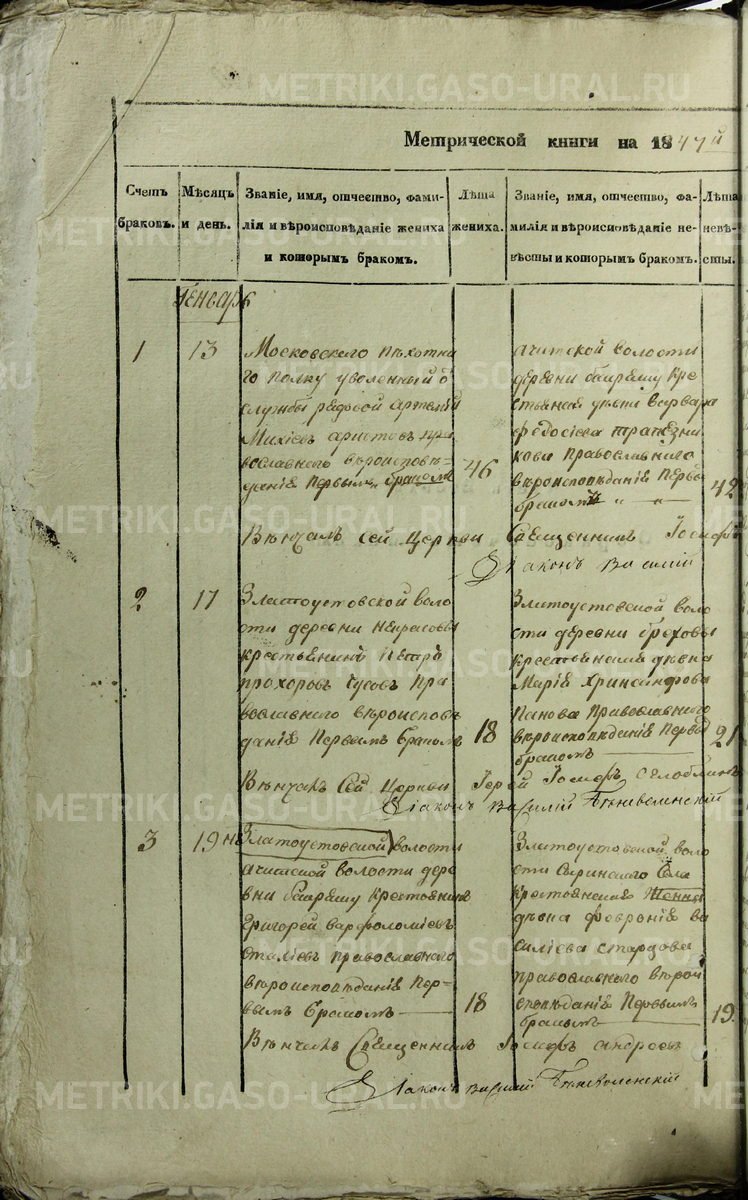 METRIKI.GASO-URAL.RU
Метрической книги на 1847й
Счетъ браковъ.
Мѣсяцъ и день.
Званіе, имя, отчество, фами-
лія и вѣроисповѣданіе жениха
и которымъ бракомъ.
Лѣта жениха.
Званіе, имя, отчество, фа-
милія и вѣроисповѣданіе не-
вѣсты и которымъ бракомъ.
Лѣта невѣ-
сты.
Генварь
1
13
Московскаго пѣхотна
го полку уволенный о
службы рядовой Артемій
Михіевъ Аристовъ пра
вославнаго вѣроисповѣ-
данія Первымъ бракомъ
46
Ачитской волости
деревни Баяраку кре
стьянская дѣвка Варвара
Федосіева Трапезни
кова Православнаго
вѣроисповѣданія Первы
бракомъ
42
Вѣнчалъ Сей Церкви Священникъ Іосифъ
Діаконъ Василій
2
17
Златоустовской воло
сти деревни Некрасовы
крестьянинъ Петръ
Прохоровъ Чусовъ Пра
вославнаго вѣроиспов
данія Первымъ бракомъ
18
Златоустовской воло
сти деревни Греховы
крестьянская дѣвка
Марія
Панова Православнаго
вѣроисповѣданія Первы
бракомъ
21
Вѣнчалъ Сей Церкви Іерей Іосифъ
Діаконъ Василій
3
19
Златоустовской волости
Ачитской волости дере
вни крестьянинъ
Григорей Варфоломіевъ
православнаго
вѣроисповѣданія Пер-
вымъ бракомъ
18
Златоустовской воло
сти Сыринскаго Села
крестьянская
дѣвка Февронія Ва
силіева
православнаго вѣрои
сповѣданія Первымъ
бракомъ
19.
Вѣнчалъ Священникъ Іосифъ
Діаконъ Василій